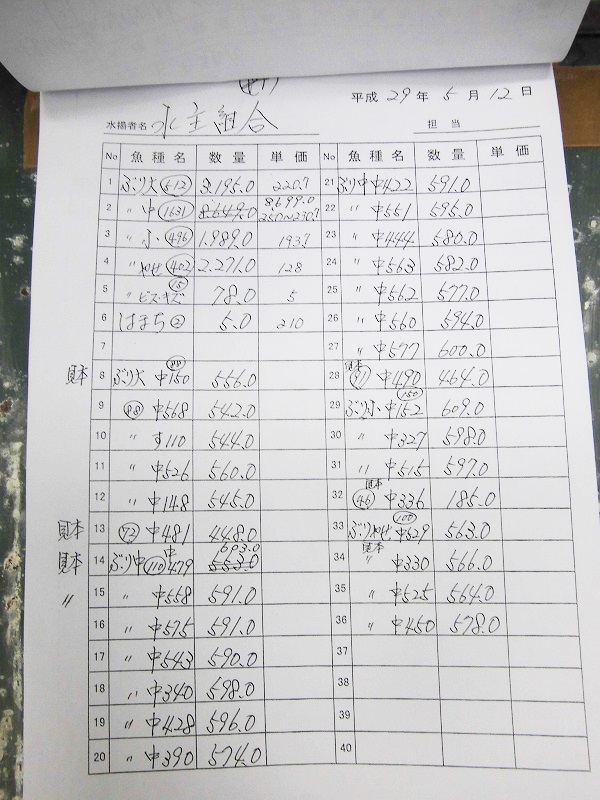 平成 29 年 5 月 12 日
水揚者名 水主組合 担当
No 魚種名 数量 単価 No 魚種名 数量 単価
1 ぶり大 512 3.195.0 220.7 21 ぶり中 中422 591.0
8699.0
2 〃 中 1631 8.649.0 250〜230.7 22 〃 中551 595.0
3 〃 小 496 1.989.0 193.7 23 〃 中444 580.0
4 〃 やせ 402 2.271.0 128 24 〃 中563 582.0
15
5 〃 ビス・キズ 78.0 5 25 〃 中562 577.0
6 はまち 2 5.0 210 26 〃 中560 594.0
7 27 〃 中577 600.0
88 見本
見本 8 ぶり大 中150 556.0 28 97 中490 464.0
150
9 88 中568 542.0 29 ぶり小 中152 609.0
10 〃 す110 544.0 30 〃 中327 598.0
11 〃 中526 560.0 31 〃 中515 597.0
見本
12 〃 中148 545.0 32 46 中336 185.0
100
見本 13 73 中481 448.0 33 ぶりやせ 中629 563.0
中 603.0 見本
見本 14 ぶり中 110 479 553.0 34 〃 中330 566.0
〃 15 〃 中558 591.0 35 〃 中525 564.0
16 〃 中575 591.0 36 〃 中450 578.0
17 〃 中543 590.0 37
18 〃 中340 598.0 38
19 〃 中428 596.0 39
20 〃 中390 574.0 40